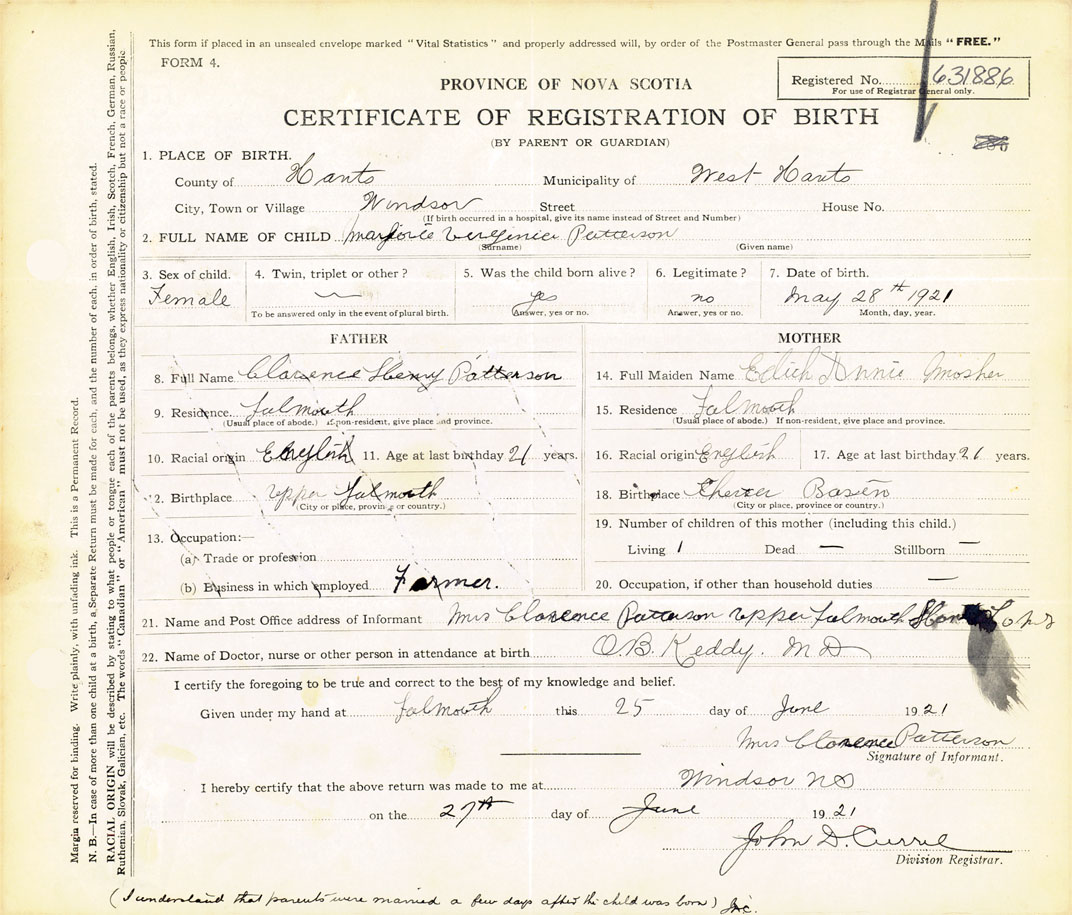 This form if placed in an unsealed envelope marked "Vital Statistics" and properly addressed will, by order of the Postmaster General pass through the Mails "FREE."
FORM 4.
Registered No. 631886
For use of Registrar General only.
PROVINCE OF NOVA SCOTIA
CERTIFICATE OF REGISTRATION OF BIRTH
(BY PARENT OR GUARDIAN)
1. PLACE OF BIRTH.
County of Hants Municipality of West Hants
City, Town or Village Windsor Street House No.
(If birth occurred in a hospital, give its name instead of Street and Number)
2. FULL NAME OF CHILD Marjorie Verginia Patterson
(Surname) (Given name)
3. Sex of child. 4. Twin, triplet or other? 5. Was the child born alive? 6. Legitimate? 7. Date of birth.
Female yes no May 28th 1921
To be answered only in the event of plural birth. Answer, yes or no. Answer, yes or no. Month, day, year.
FATHER
8. Full Name Clarence Henry Patterson
9. Residence. Falmouth
(Usual place of abode.) If non-resident, give place and province.
10. Racial origin English 11. Age at last birthday 21 years.
12. Birthplace Upper Falmouth
(City or place, province or country.)
13. Occupation:—
(a) Trade or profession
(b) Business in which employed Farmer.
MOTHER
14. Full Maiden Name Edith Annie Mosher
15. Residence Falmouth
(Usual place of abode.) If non-resident, give place and province.
16. Racial origin English 17. Age at last birthday 21 years.
18. Birthplace Chester Basen
(City or place, province or country.)
19. Number of children of this mother (including this child.)
Living 1 Dead — Stillborn —
20. Occupation, if other than household duties —
21. Name and Post Office address of Informant Mrs Clarence Patterson Upper Falmouth
22. Name of Doctor, nurse or other person in attendance at birth O.B. Keddy. M D
I certify the foregoing to be true and correct to the best of my knowledge and belief.
Given under my hand at Falmouth this 25 day of June 1921
Mrs Clarence Patterson
Signature of Informant.
I hereby certify that the above return was made to me at Windsor NS
on the 27th day of June 1921
John D. Currie
Division Registrar.
(I understand that parents were married a few days after the child was born)
Margin reserved for binding. Write plainly, with unfading ink. This is a Permanent Record.
N. B.—In case of more than one child at a birth, a Separate Return must be made for each, and the number of each, in order of birth, stated.
RACIAL ORIGIN will be described by stating to what people or tongue each of the parents belongs, whether English, Irish, Scotch, French, German, Russian,
Ruthenian, Slovak, Galician, etc. The words "Canadian" or "American" must not be used, as they express nationality or citizenship but not a race or people